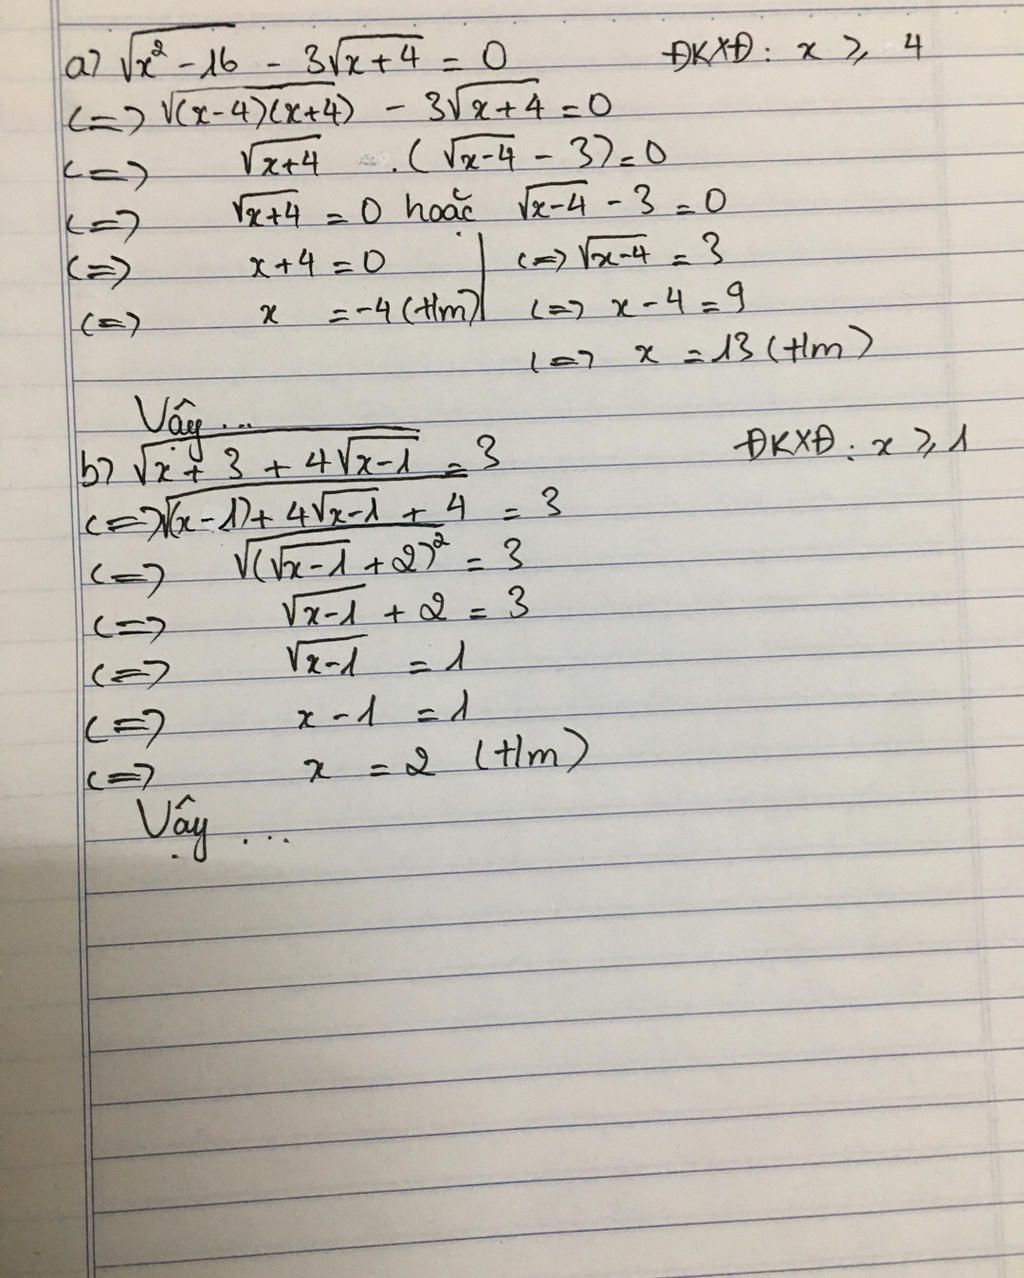 a) √(x²-16) - 3√(x+4) = 0 ĐKXĐ: x ≥ 4
<=> √((x-4)(x+4)) - 3√(x+4) = 0
<=> √(x+4) . (√(x-4) - 3) = 0
<=> √(x+4) = 0 hoặc √(x-4) - 3 = 0
<=> x+4 = 0 | <=> √(x-4) = 3
<=> x = -4 (t/m) | <=> x - 4 = 9
<=> x = 13 (t/m)
Vậy ...
b) √(x + 3 + 4√(x-1)) = 3 ĐKXĐ: x ≥ 1
<=> √((x-1) + 4√(x-1) + 4) = 3
<=> √((√(x-1) + 2)²) = 3
<=> √(x-1) + 2 = 3
<=> √(x-1) = 1
<=> x - 1 = 1
<=> x = 2 (t/m)
Vậy ...